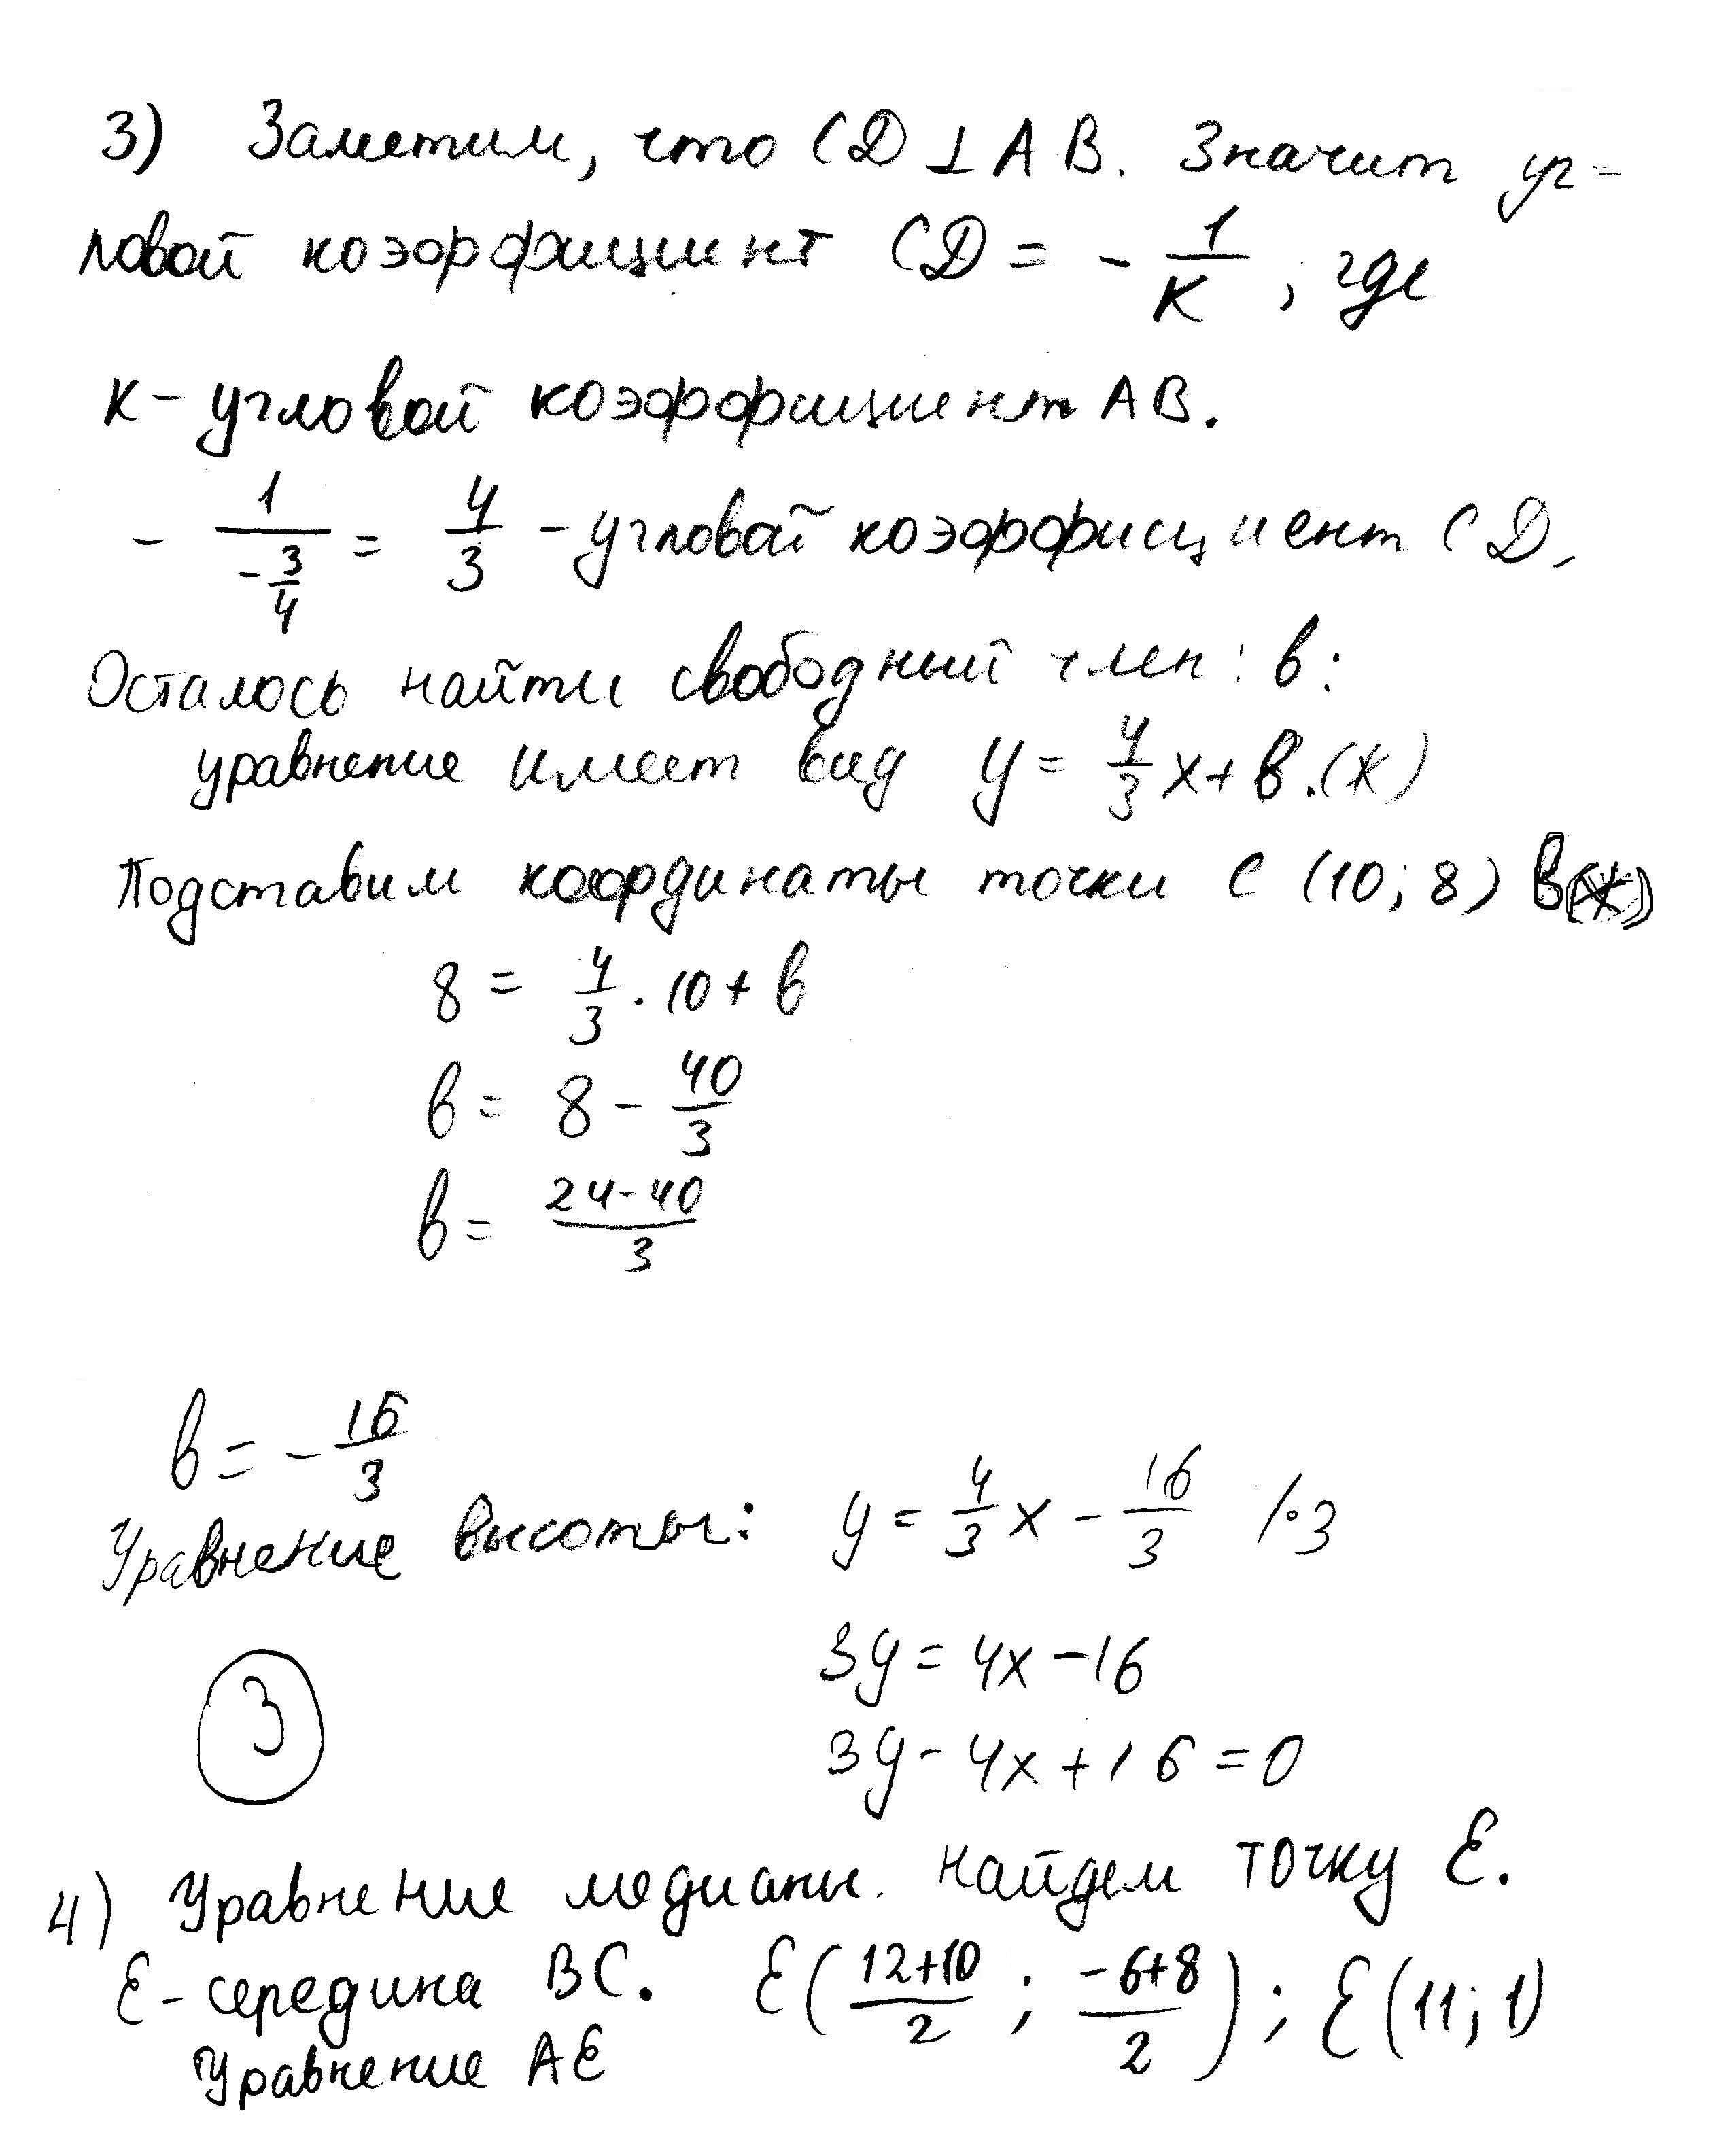 3) Заметим, что CD ⊥ AB. Значит уг-
ловой коэффициент CD = - 1/K, где
K - угловой коэффициент AB.
- 1/(-3/4) = 4/3 - угловой коэффициент CD.
Осталось найти свободный член: b:
уравнение имеет вид y = 4/3 x + b. (*)
Подставим координаты точки C (10; 8) в (*)
8 = 4/3 · 10 + b
b = 8 - 40/3
b = (24-40)/3
b = - 16/3
Уравнение высоты: y = 4/3 x - 16/3 /·3
3y = 4x - 16
3
3y - 4x + 16 = 0
4) Уравнение медианы. Найдем точку E.
E - середина BC. E((12+10)/2 ; (-6+8)/2); E(11; 1)
Уравнение AE